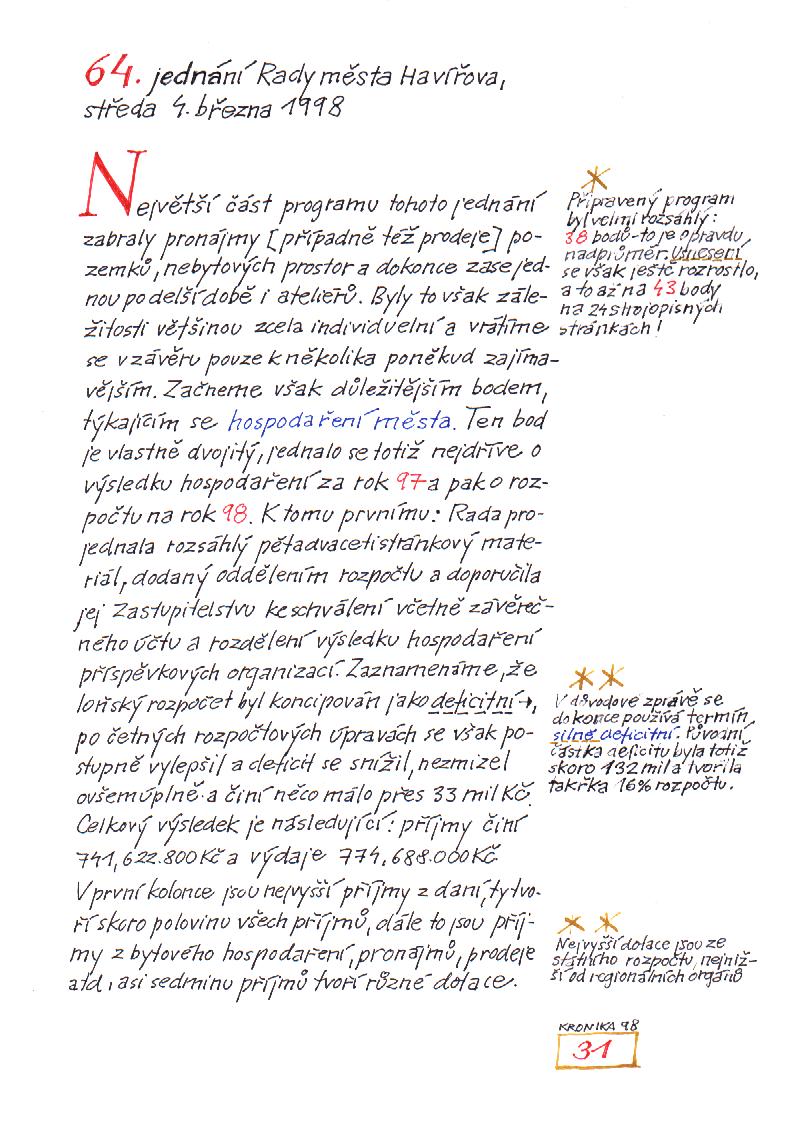 64. jednání Rady města Havířova,
středa 4. března 1998
Největší část programu tohoto jednání
zabraly pronájmy [případně též prodeje] po-
zemků, nebytových prostor a dokonce zase jed-
nou po delší době i atelierů. Byly to však zále-
žitosti většinou zcela individuelní a vrátíme
se v závěru pouze k několika poněkud zajíma-
vějším. Začneme však důležitějším bodem,
týkajícím se hospodaření města. Ten bod
je vlastně dvojitý, jednalo se totiž nejdříve o
výsledku hospodaření za rok 97 a pak o roz-
počtu na rok 98. K tomu prvnímu: Rada pro-
jednala rozsáhlý pětadvacetistránkový mate-
riál, dodaný oddělením rozpočtu a doporučila
jej Zastupitelstvu ke schválení včetně závěreč-
ného účtu a rozdělení výsledku hospodaření
příspěvkových organizací. Zaznamenáme, že
loňský rozpočet byl koncipován jako deficitní,
po četných rozpočtových úpravách se však po-
stupně vylepšil a deficit se snížil, nezmizel
ovšem úplně a činí něco málo přes 33 mil Kč.
Celkový výsledek je následující: příjmy činí
741,622.800 Kč a výdaje 774,688.000 Kč.
V první kolonce jsou nejvyšší příjmy z daní, ty tvo-
ří skoro polovinu všech příjmů, dále to jsou příj-
my z bytového hospodaření, pronájmů, prodeje
atd, asi sedminu příjmů tvoří různé dotace.
*
Připravený program
byl velmi rozsáhlý:
38 bodů - to je opravdu
nadprůměr. Usnesení
se však ještě rozrostlo,
a to až na 43 body
na 24 strojopisných
stránkách!
**
V důvodové zprávě se
dokonce používá termín
silně deficitní. Původní
částka deficitu byla totiž
skoro 132 mil a tvořila
takřka 16% rozpočtu.
**
Nejvyšší dotace jsou ze
státního rozpočtu, nejniž-
ší od regionálních orgánů
KRONIKA 98
31